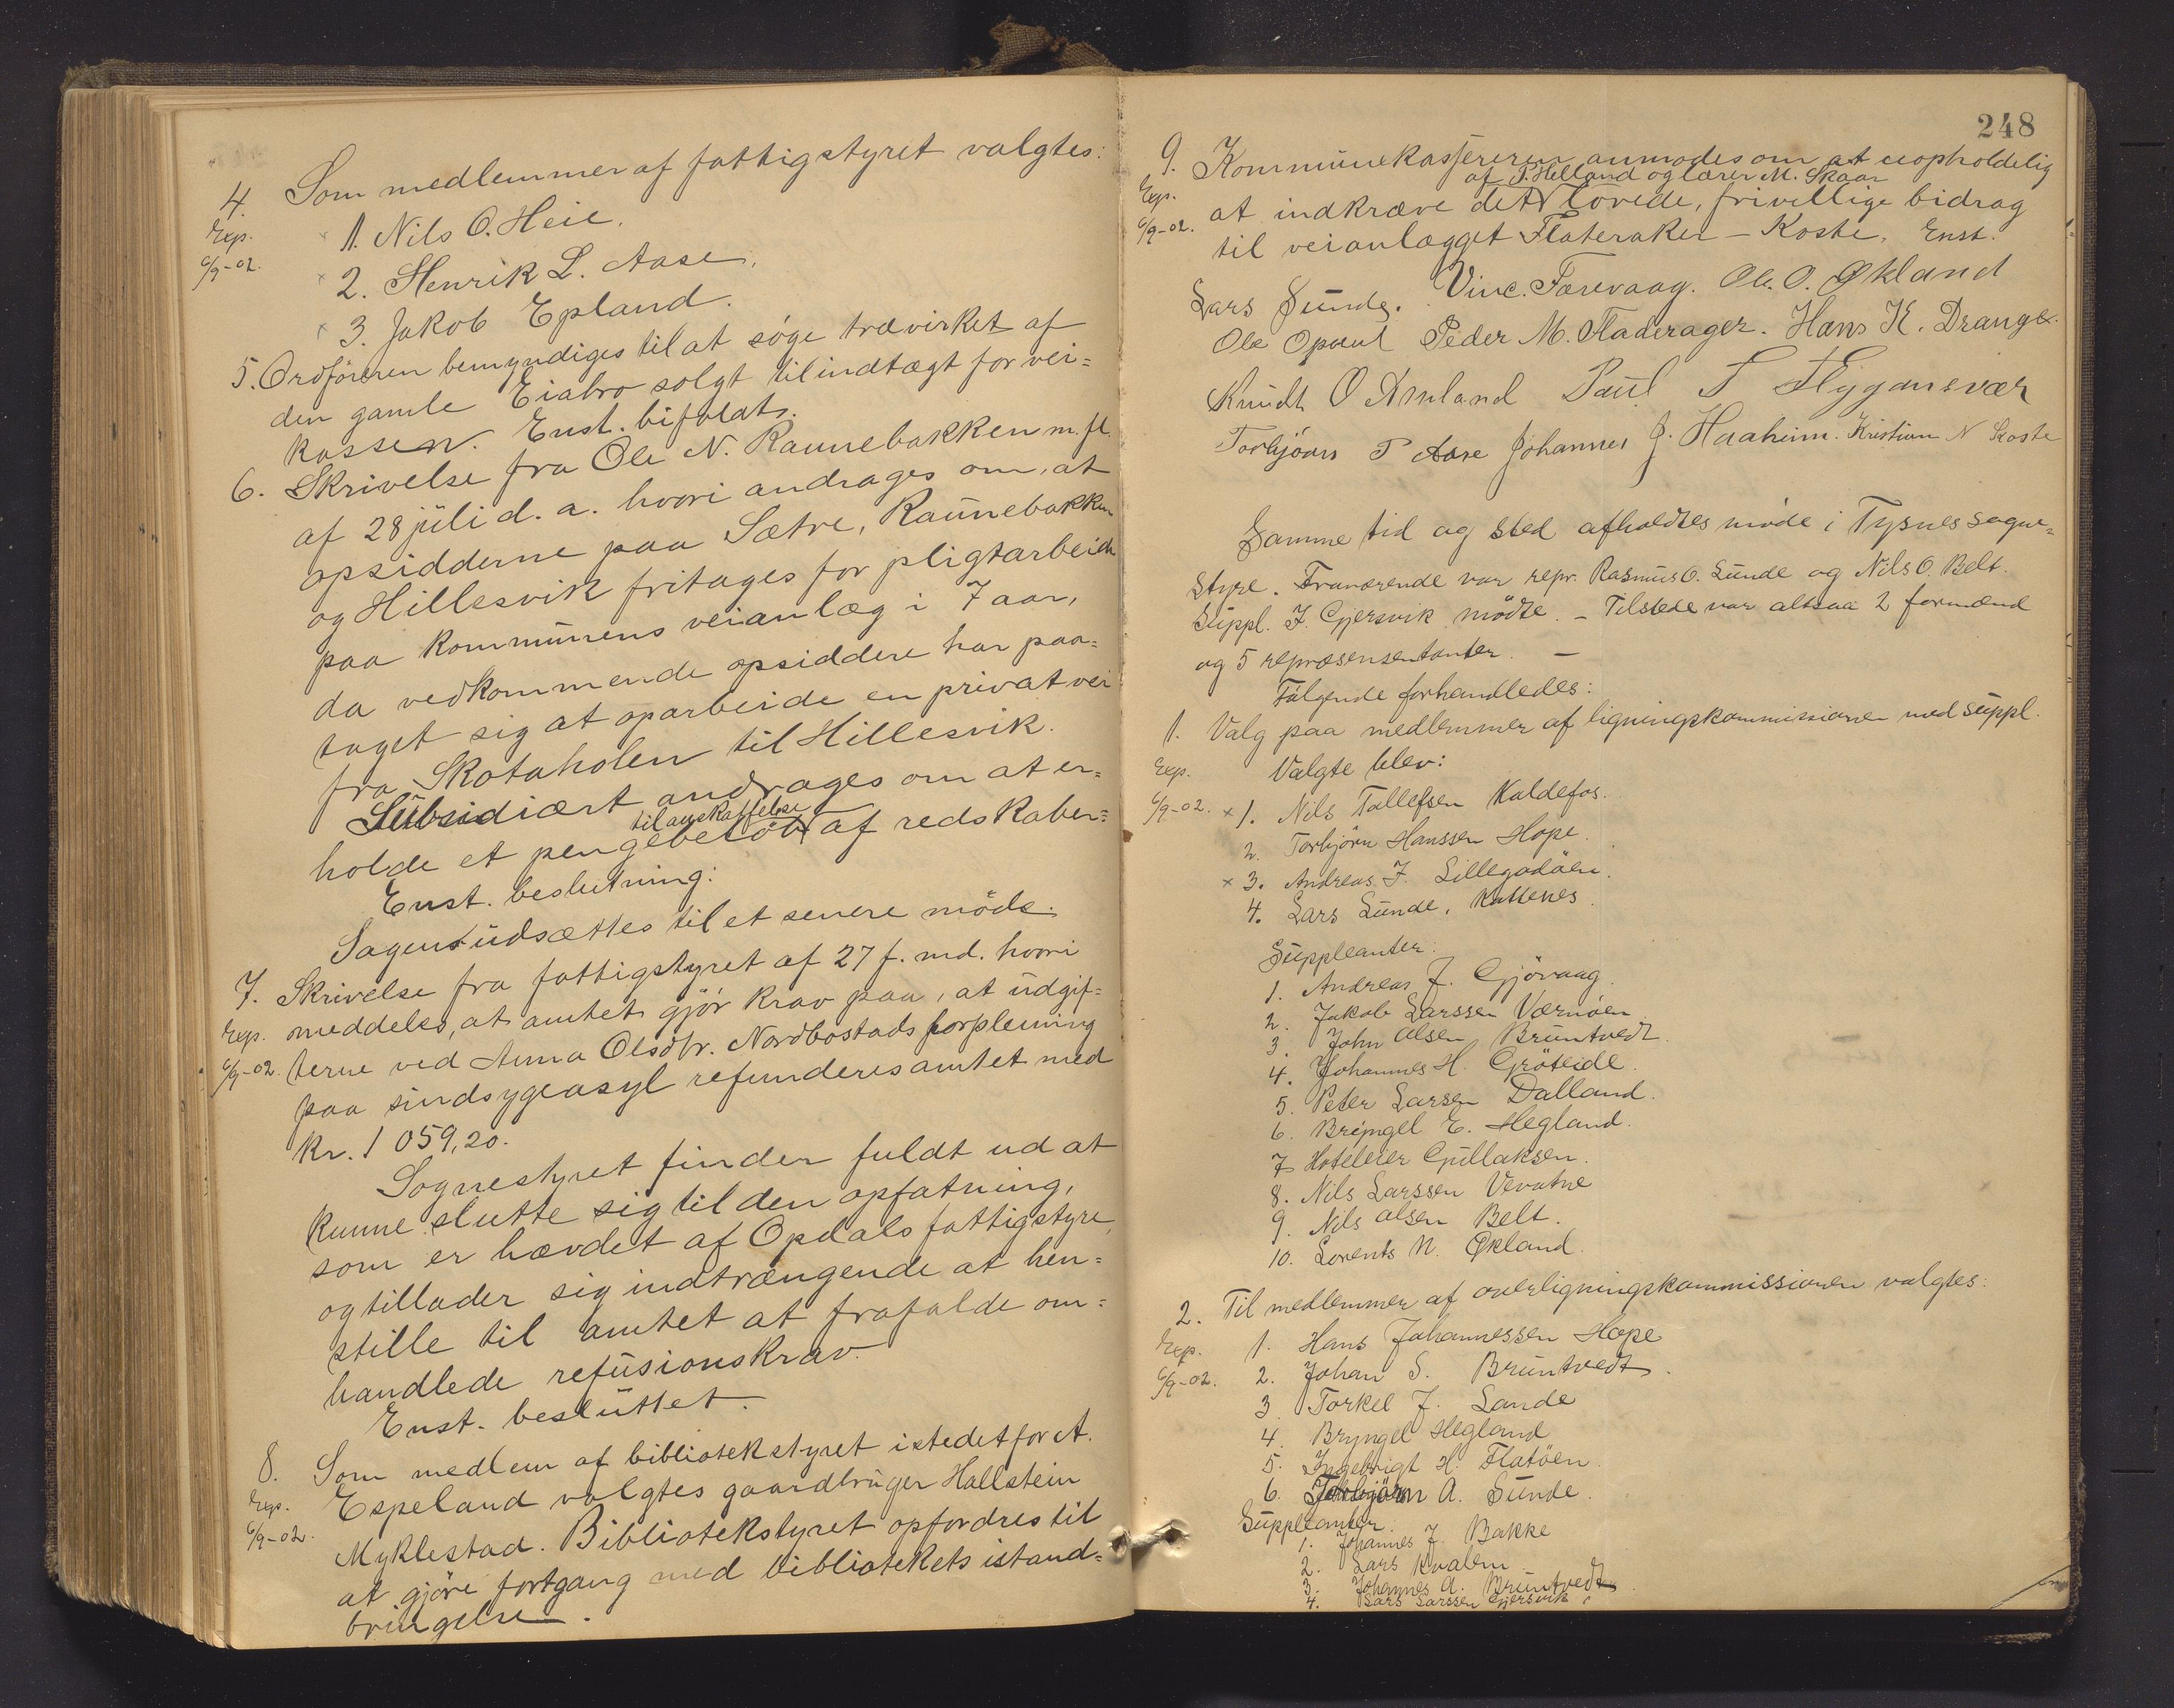 4. Som medlemmer af fattigstyret valgtes:
Exp. 6/9-02.
× 1. Nils O. Heie.
× 2. Henrik L. Aase.
× 3. Jakob Epland.
5. Ordföreren bemyndiges til at söge trævirket af
den gamle Eiabro solgt til indtægt for vei=
kassen. Enst. bifaldt.
6. Skrivelse fra Ole N. Raunebakken m. fl.
af 28 juli d. a. hvori andrages om, at
opsidderne paa Sætre, Raunebakken
og Hillesvik fritages for pligtarbeide
paa kommunens veianlæg i 7 aar,
da vedkommende opsiddere har paa=
taget sig at oparbeide en privat vei
fra Skotaholen til Hillesvik.
Subsidiært andrages om at er=
holde et pengebelöb til anskaffelse af redskaber=
Enst. beslutning:
Sagen udsættes til et senere möde.
7. Skrivelse fra fattigstyret af 27 f. md. hvori
Exp. meddeles, at amtet gjör krav paa, at udgif=
6/9-02. terne ved Anna Olsdtr. Nordbostads forpleining
paa sindsygeasyl refunderes amtet med
kr. 1 059,20.
Sognestyret finder fuldt ud at
kunne slutte sig til den opfatning,
som er hævdet af Opdals fattigstyre,
og tillader sig indtrængende at hen=
stille til amtet at frafalde om=
handlede refusionskrav.
Enst. besluttet.
8. Som medlem af bibliotekstyret istedetfor A.
Exp. Espeland valgtes gaardbruger Hallstein
6/9-02. Myklestad. Bibliotekstyret opfordres til
at gjöre fortgang med bibliotekets istand=
bringelse.
248
9. Kommunekassereren anmodes om at uopholdelig
Exp. 6/9-02. at indkræve det af P. Helland og lærer M. Skaar lovede, frivillige bidrag
til veianlægget Flateraker - Koste. Enst.
Lars Sunde. Vinc. Færevaag. Ole O. Økland
Ole Opdal Peder M. Fladerager. Hans K. Drange.
Knudt O Amland Paul T Flygansvær
Torbjörn T Aase Johannes J. Haaheim. Kristian N Koste
Samme tid og sted afholdtes möde i Tysnes sogne=
styre. Fraværende var repr. Rasmus O. Sunde og Nils O. Belt.
Suppl. J. Gjersvik mödte. - Tilstede var altsaa 2 formænd
og 5 repræsensentanter. -
Fölgende forhandledes:
1. Valg paa medlemmer af ligningskommissionen med suppl.
Exp. Valgte blev:
6/9-02. × 1. Nils Tollefsen Kaldefos.
2. Torbjörn Hanssen Hope.
× 3. Andreas J. Lillegadöen.
4. Lars Sunde, Kattenes.
Suppleanter:
1. Andreas J. Gjövaag.
2. Jakob Larssen Værnöen
3. John Olsen Bruntvedt.
4. Johannes H. Gröteide.
5. Peter Larsen Dalland.
6. Bryngel E. Hegland.
7 Hoteleier Gullaksen.
8. Nils Larssen Vevatne
9. Nils Olsen Belt.
10. Lorents N. Økland.
2. Til medlemmer af overligningskommissionen valgtes:
Exp. 1. Hans Johannessen Hope
6/9-02. 2. Johan S. Bruntvedt.
3 Torkel J. Lande
4. Bryngel Hegland
5. Ingebrigt H. Flatöen.
6. Torbjörn A. Sunde.
Suppleanter.
1. Johannes J. Bakke
2. Lars Kvalem
3. Johannes A. Bruntvedt.
4. Lars Larssen Gjersvik